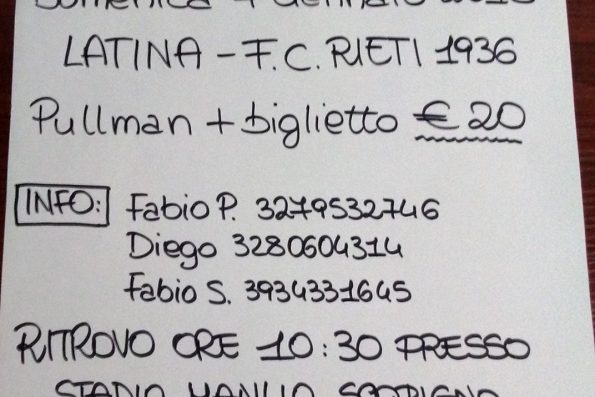 LATINA - F.C. RIETI 1936
Pullman + biglietto € 20
INFO: Fabio P. 3279532746
Diego 3280604314
Fabio S. 3934331645
RITROVO ORE 10:30 PRESSO
STADIO MANLIO SCOPIGNO